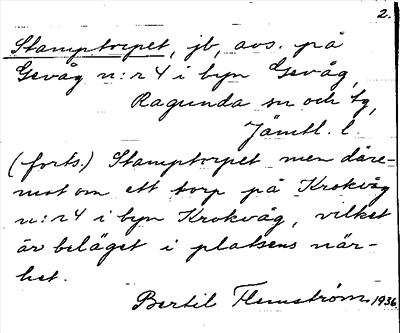 2.
Stamptorpet, jb, avs. på
Gevåg n:r 4 i byn Gevåg,
Ragunda sn och tg,
Jämtl. l.
(forts.) Stamptorpet men däre-
mot om ett torp på Krokvåg
n:r 4 i byn Krokvåg, vilket
är beläget i platsens när-
het.
Bertil Flemström 1936